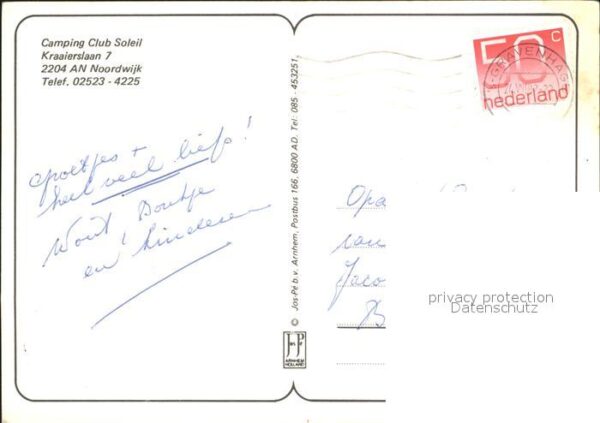 Camping Club Soleil
Kraaierslaan 7
2204 AN Noordwijk
Telef. 02523 - 4225
groetjes +
heel veel liefs!
Wout, Doutje
en kinderen
© Jos-Pé b.v. Arnhem, Postbus 166, 6800 AD, Tel: 085 - 453251
JP
ARNHEM
HOLLAND
50 C
nederland
'S-GRAVENHAGE
Opa
van
Jaco
privacy protection
Datenschutz